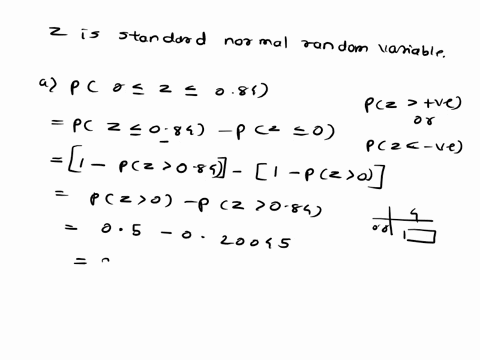 Z is standard normal random variable.
a) P( 0 ≤ z ≤ 0.84)
= P( z ≤ 0.84) - P(z ≤ 0)
= [1 - P(z > 0.84)] - [1 - P(z > 0)]
= P(z > 0) - P(z > 0.84)
= 0.5 - 0.20045
=
P(z > +ve)
or
P(z < -ve)
4
0.8 1